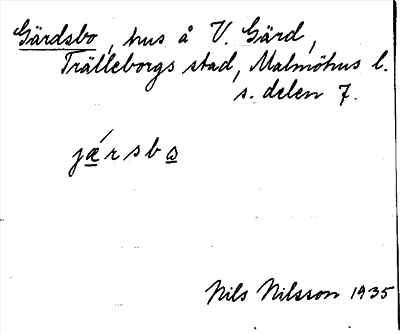 Gärdsbo, hus å V. Gärd,
Trälleborgs stad, Malmöhus l.
s. delen 7.
jǽrsbω
Nils Nilsson 1935